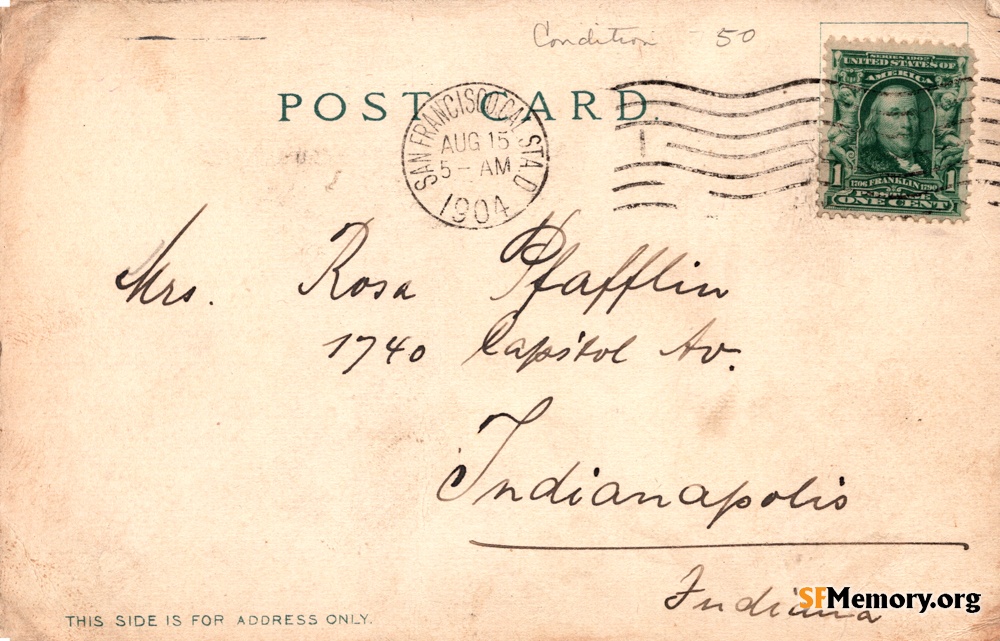 Condition - 50
POST CARD.
SAN FRANCISCO, CAL. STA. D
AUG 15
5 - AM
1904
SERIES 1902
UNITED STATES OF
AMERICA
1 1
1706 FRANKLIN 1790
POSTAGE
ONE CENT
Mrs. Rosa Pfafflin
1740 Capitol Av.
Indianapolis
Indiana
THIS SIDE IS FOR ADDRESS ONLY.
SFMemory.org